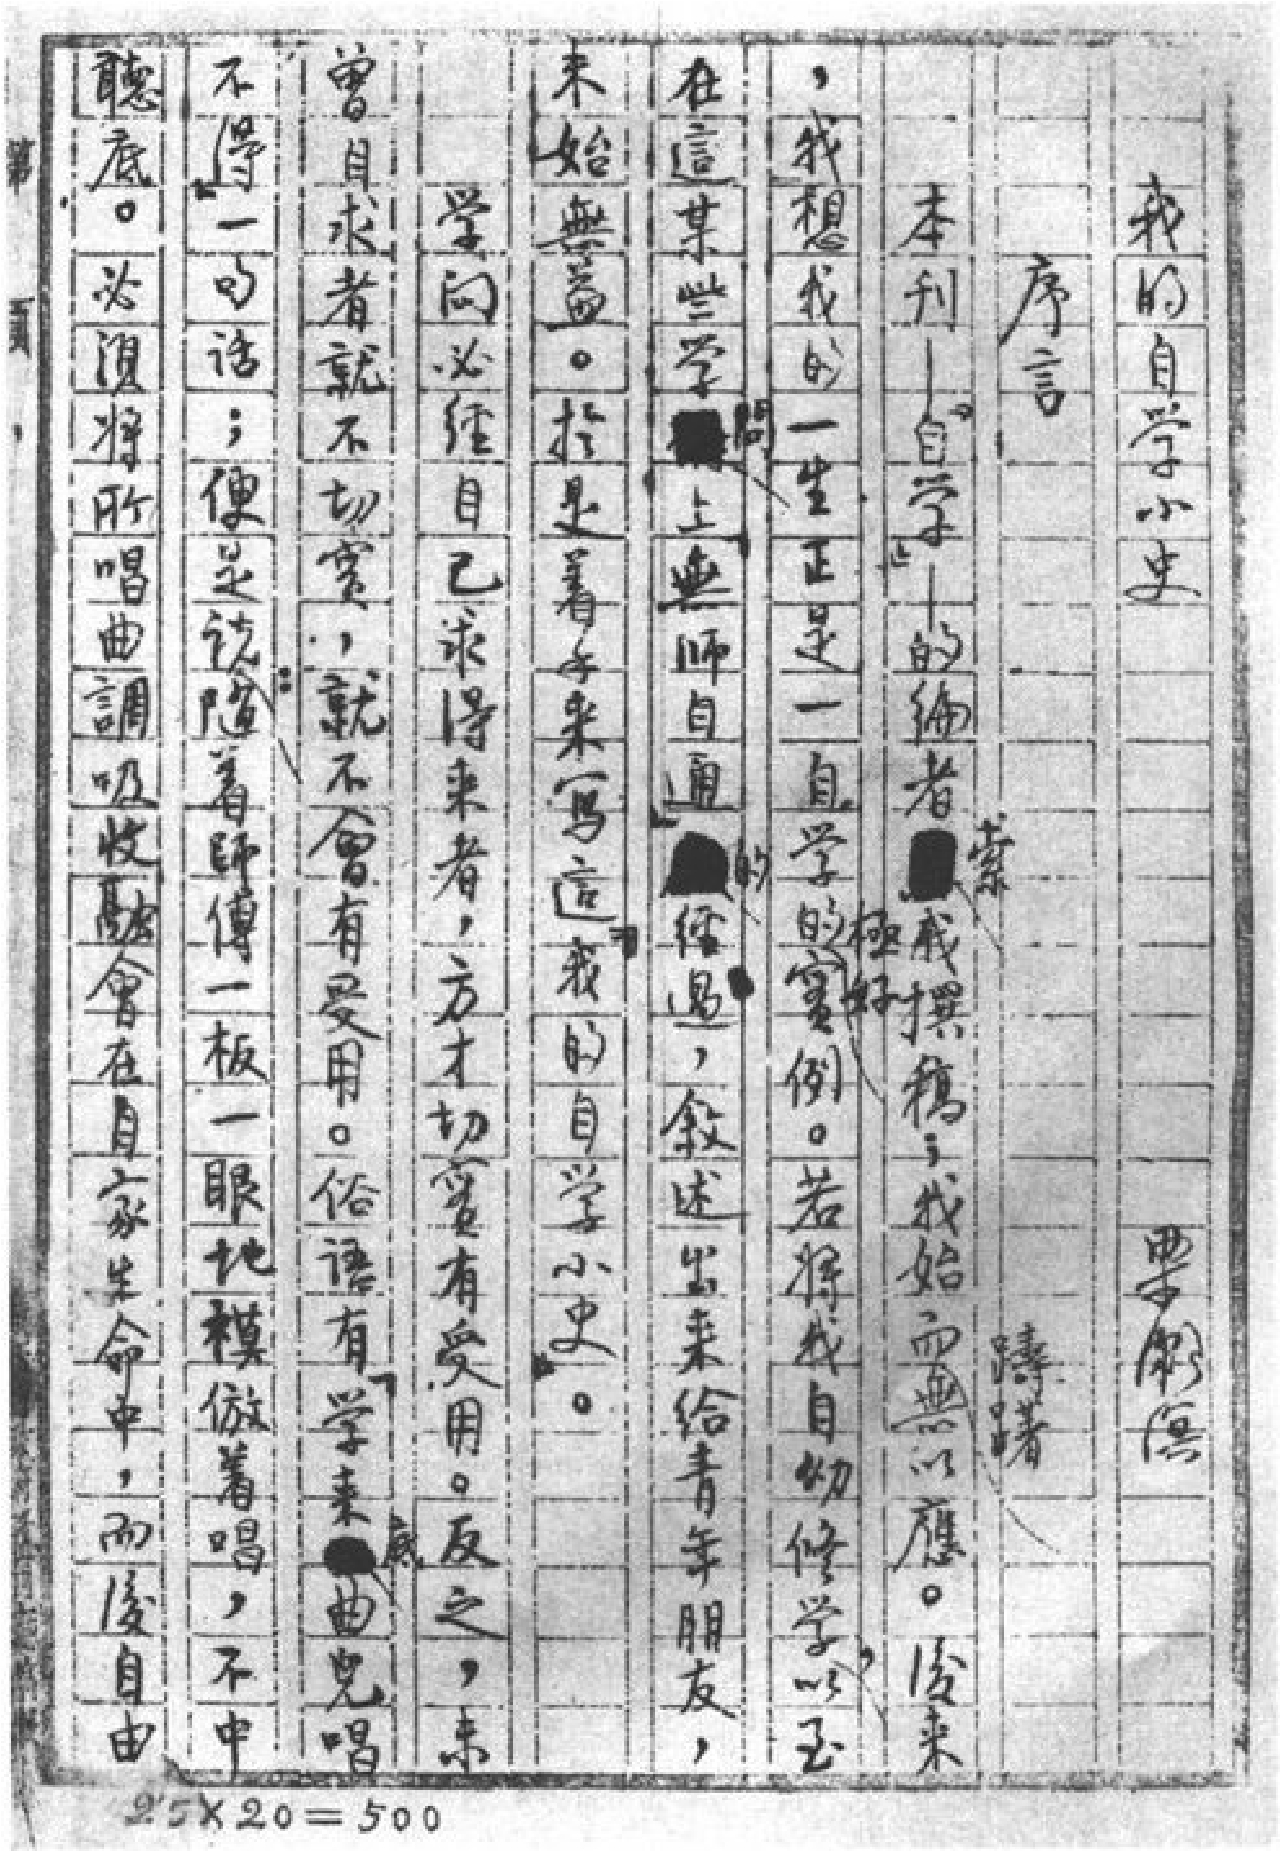 我的自学小史　梁漱溟
序言
本刊—「自学」—的编者索我撰稿；我始而躊躇無以應。後来
，我想我的一生正是一自学的極好實例。若将我自幼修学，以至
在這某些学問上無師自通」的經過，叙述出来给青年朋友，
未始無益。於是着手来寫這「我的自学小史」。
学问必經自己求得来者，方才切實有受用。反之，未
曾自求者就不切實，就不會有受用。俗語有「学来底曲兒唱
不得」一句话；便是说：隨着師傅一板一眼地模倣着唱，不中
聽底。必須将所唱曲調吸收融會在自家生命中，而後自由
第　頁
25×20=500